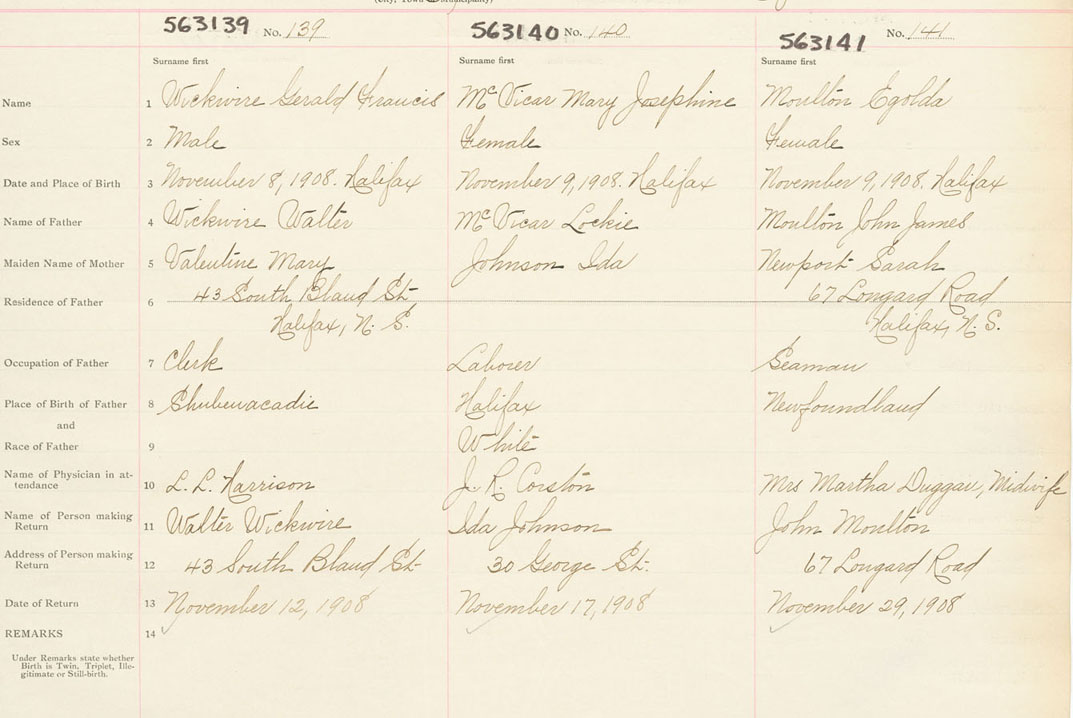 (City, Town or Municipality)
563139 No. 139 563140 No. 140 563141 No. 141
Surname first Surname first Surname first
Name 1 Wickwire Gerald Francis McVicar Mary Josephine Moulton Egolda
Sex 2 Male Female Female
Date and Place of Birth 3 November 8, 1908. Halifax November 9, 1908. Halifax November 9, 1908. Halifax
Name of Father 4 Wickwire Walter McVicar Lockie Moulton John James
Maiden Name of Mother 5 Valentine Mary Johnson Ida Newport Sarah
Residence of Father 6 43 South Bland St. 67 Longard Road
Halifax, N. S. Halifax, N. S.
Occupation of Father 7 Clerk Laborer Seaman
Place of Birth of Father 8 Shubenacadie Halifax Newfoundland
and
Race of Father 9 White
Name of Physician in at-
tendance 10 L. L. Harrison J. R. Corston Mrs Martha Duggan, Midwife
Name of Person making
Return 11 Walter Wickwire Ida Johnson John Moulton
Address of Person making
Return 12 43 South Bland St. 30 George St. 67 Longard Road
Date of Return 13 November 12, 1908 November 17, 1908 November 29, 1908
REMARKS 14
Under Remarks state whether
Birth is Twin, Triplet, Ille-
gitimate or Still-birth.